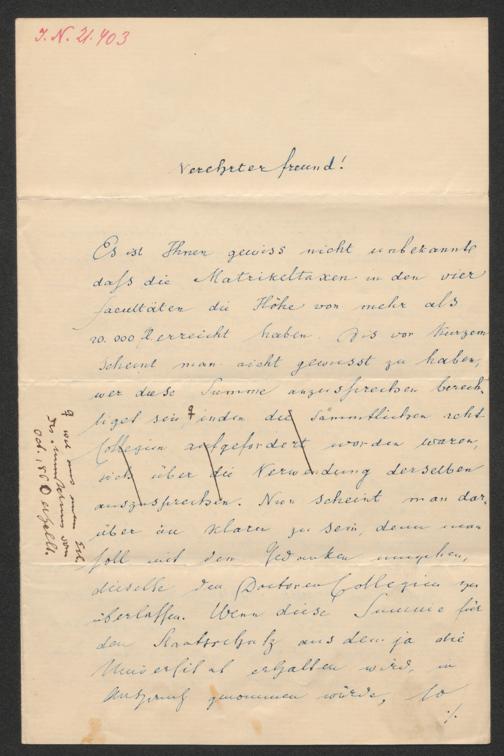 I. N. 21.403
Verehrter freund!
Es ist Ihnen gewiss nicht unbekannt
daſs die Matrikeltaxen in den vier
facultäten die Höhe von mehr als
20.000 erreicht haben. Bis vor Kurzem
scheint man nicht gewusst zu haben,
wer diese Summe anzusprechen berech-
tiget sei, indem die sämmtlichen
Collegien aufgefordert worden waren,
sich über die Verwendung derselben
auszusprechen. Nun scheint man dar-
über im klaren zu sein, denn man
soll mit dem Gedanken umgehen,
dieselbe den Doctoren Collegien zu
überlaſſen. Wenn diese Summe für
den Staatsschatz aus dem ja die
Universität erhalten wird, in
Anspruch genommen würde, so
./.